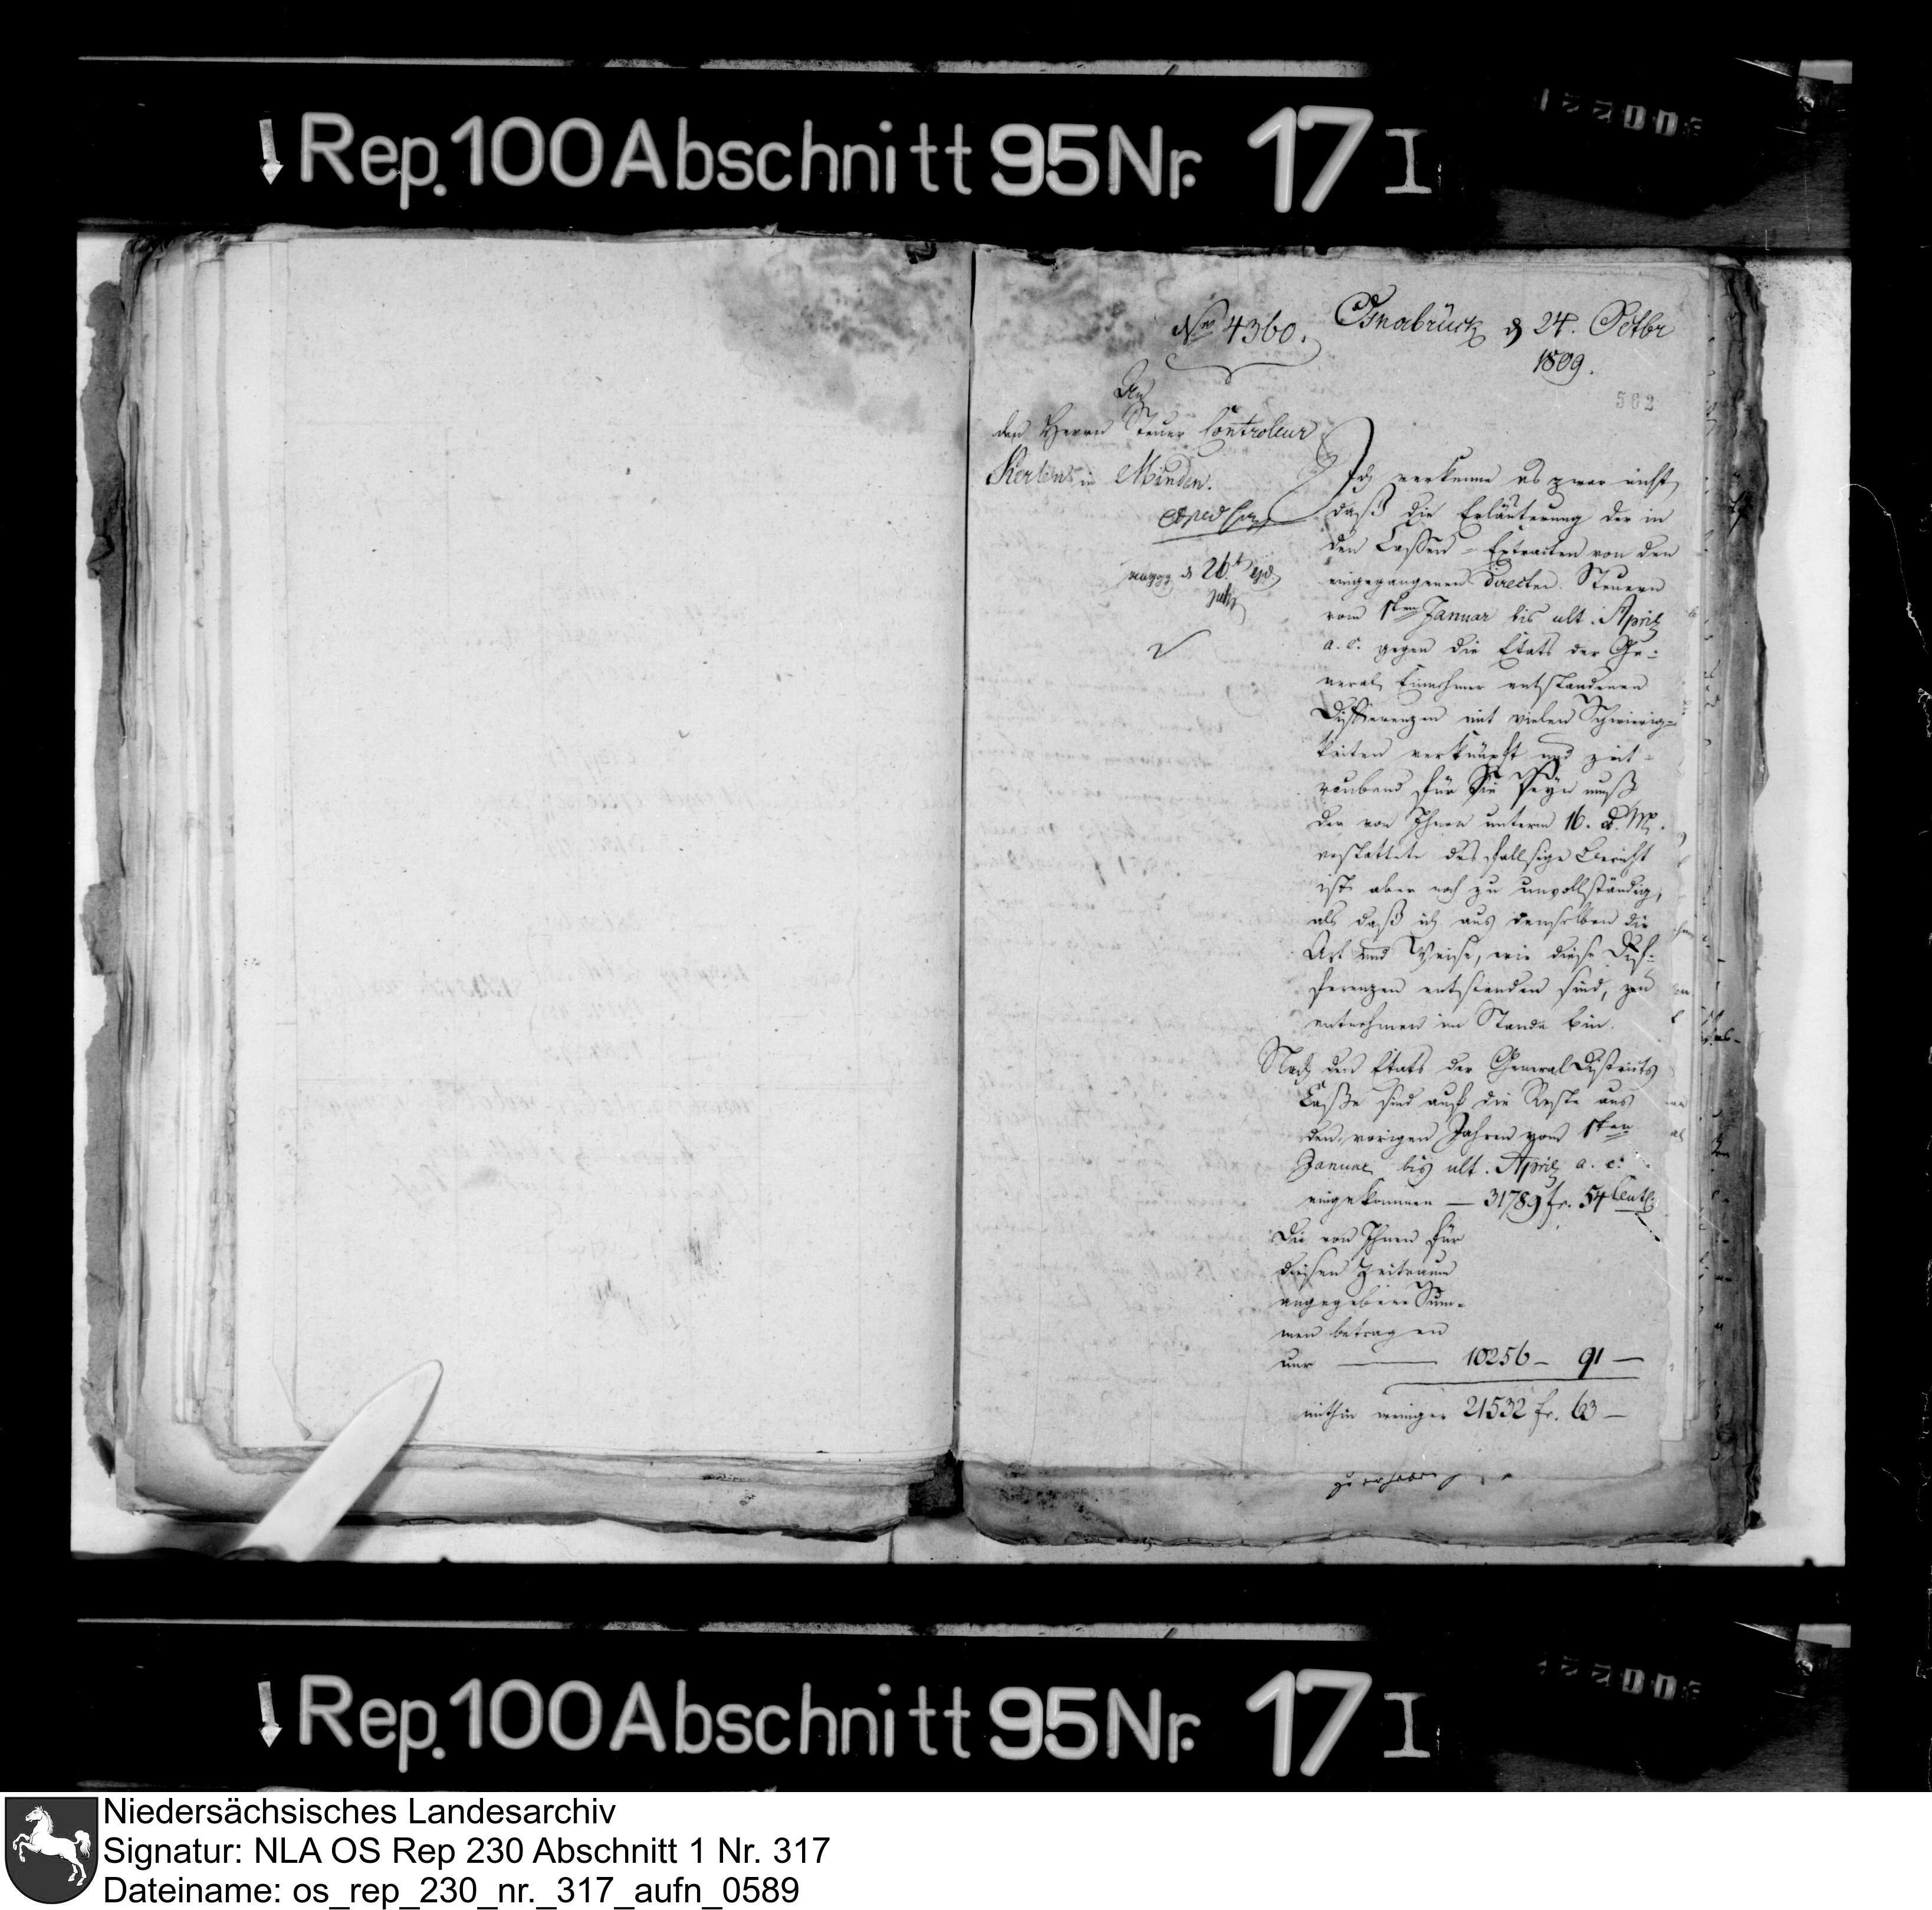 Rep. 100 Abschnitt 95 Nr. 17 I
No 4360.
Osnabrück d 24. Octbr
1809.
502
An
den Herrn Steuer Controleur
in Minden.
d 26t ejd.
Ich verkenne es zwar nicht
daß die Erläuterung der in
den Cassen-Extracten von den
eingegangenen directen Steuern
vom 1ten Januar bis ult. April
a. c. gegen die Etats der Ge-
neral Einnehmer entstandenen
Differenzen mit vielen Schwierig-
keiten verknüpft und zeit-
raubend für Sie seyn muß
der von Ihnen unterm 16. d. M.
erstattete desfallsige Bericht
ist aber noch zu unvollständig,
als daß ich aus demselben die
Art und Weise, wie diese Dif-
ferenzen entstanden sind, zu
entnehmen im Stande bin.
Nach den Etats der General Districts
Casse sind auf die Reste aus
den vorigen Jahren vom 1ten
Januar bis ult. April a. c.
eingekommen — 31789 fr. 54 Cent
Die von Ihnen für
diesen Zeitraum
angegebene Sum-
men betragen
nur — 10256 — 91 —
mithin weniger 21532 fr. 63 —
Rep. 100 Abschnitt 95 Nr. 17 I
Niedersächsisches Landesarchiv
Signatur: NLA OS Rep 230 Abschnitt 1 Nr. 317
Dateiname: os_rep_230_nr._317_aufn_0589